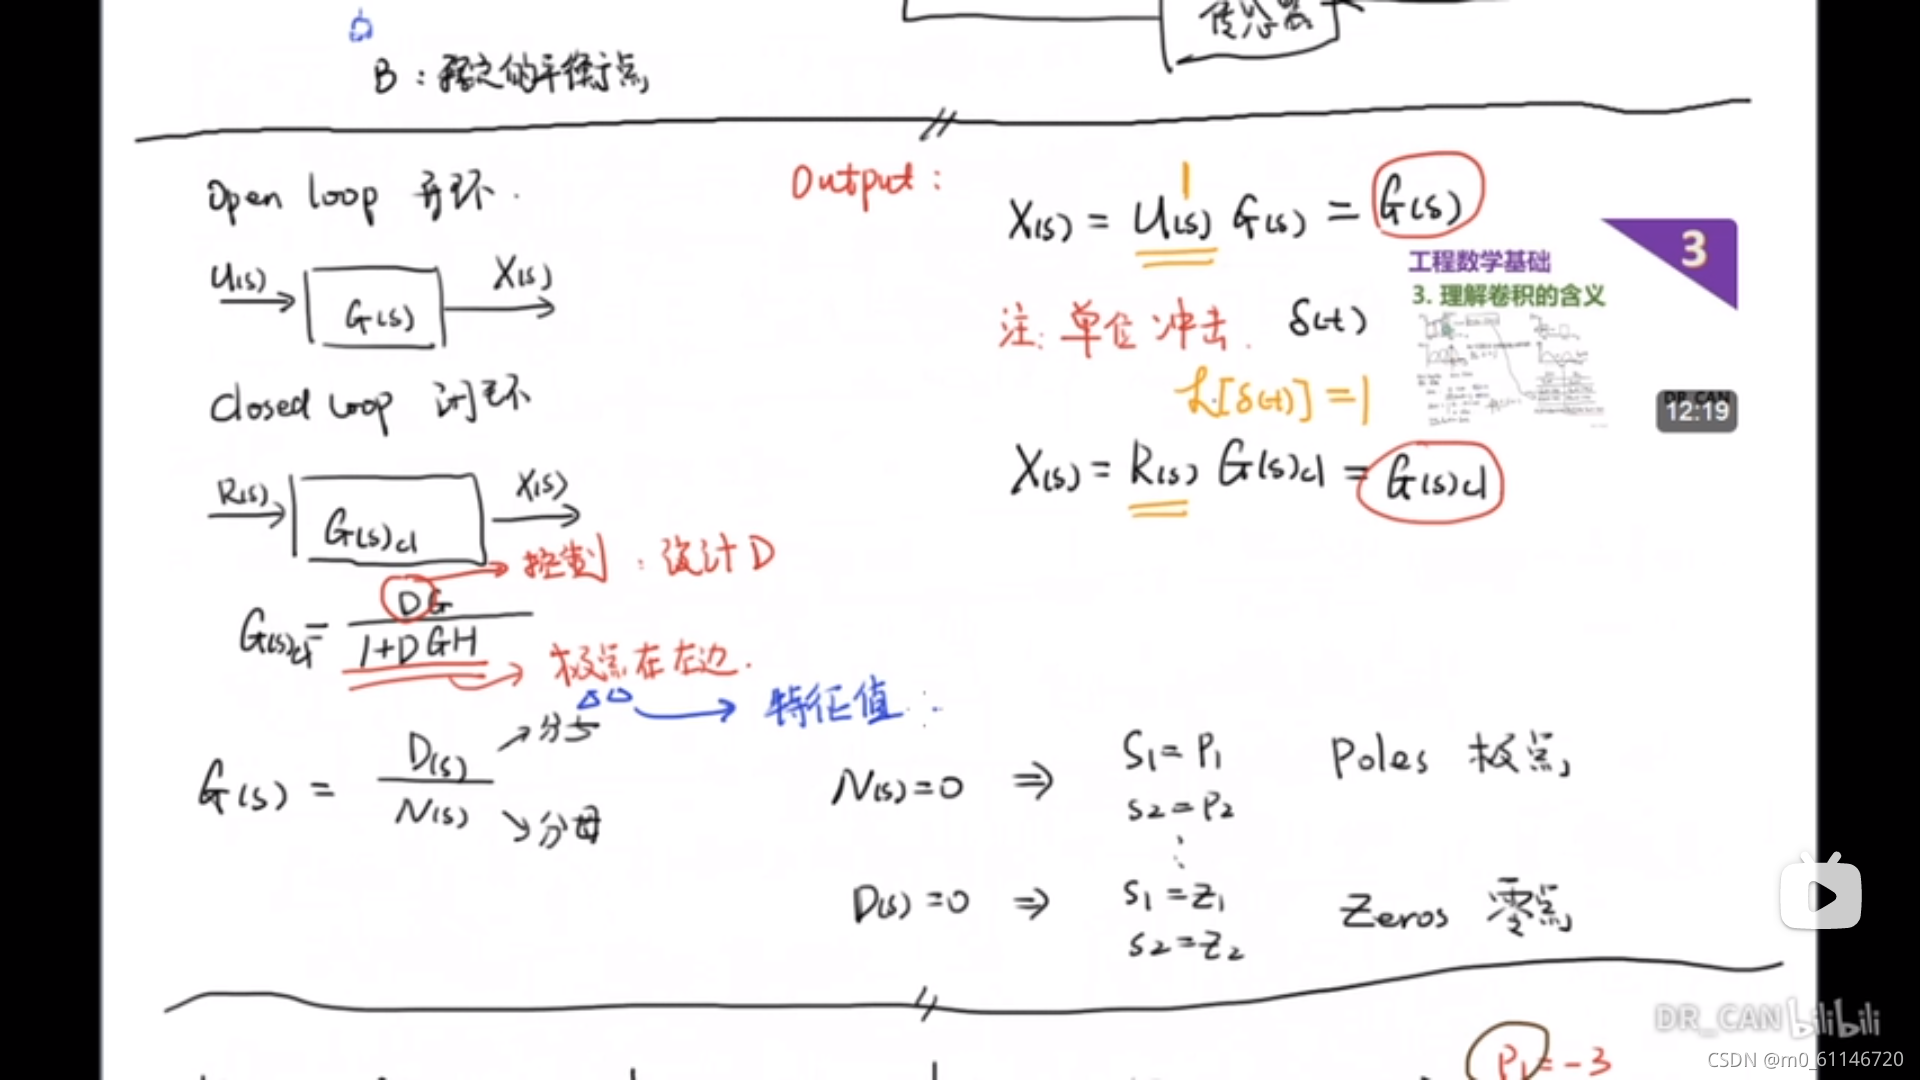 传感器
B：稳定的平衡点
Open loop 开环.
U(s)
G(s)
X(s)
Closed Loop 闭环
R(s)
G(s)cl
X(s)
G(s)cl = DG / 1+DGH
控制：设计D
极点在左边.
特征值
G(s) = D(s) / N(s)
分子
分母
Output：
1
X(s) = U(s) G(s) = G(s)
注：单位冲击. δ(t)
L[δ(t)] = 1
X(s) = R(s) G(s)cl = G(s)cl
3
工程数学基础
3. 理解卷积的含义
DR_CAN
12:19
N(s)=0 ⇒ S1=P1 Poles 极点
S2=P2
⋮
D(s)=0 ⇒ S1=Z1 Zeros 零点
S2=Z2
P1=-3
DR_CAN bilibili
CSDN @m0_61146720